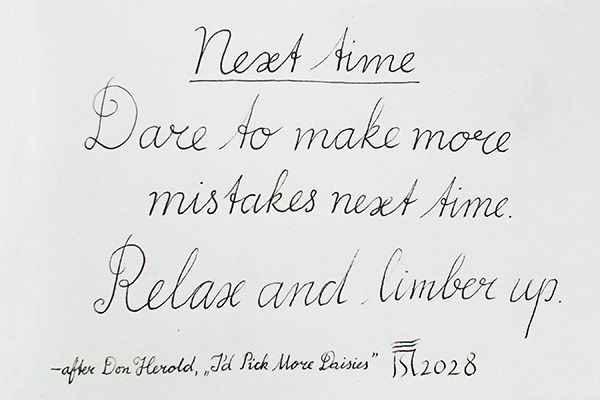 Next time
Dare to make more
mistakes next time.
Relax and limber up.
–after Don Herold, „I'd Pick More Daisies” 2028